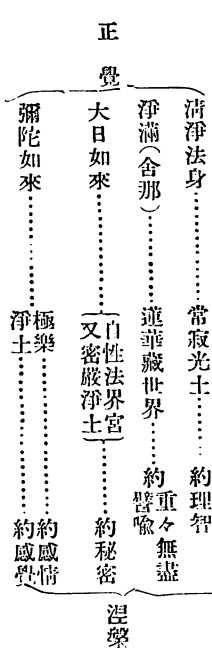 正覺
清淨法身………………常寂光土………約理智
淨滿(舍那)…………蓮華藏世界……約重々無盡譬喻
大日如來………………自性法界宮又密嚴淨土………約秘密
彌陀如來………………極樂淨土………約感情約感覺
涅槃